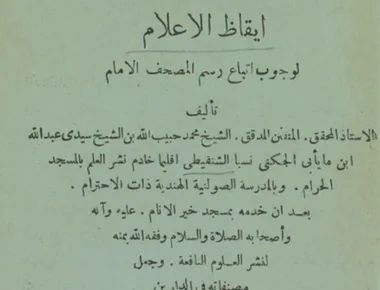 ايقاظ الاعلام
لوجوب اتباع رسم المصحف الامام
تأليف
الاستاذ المحقق . المتفنن المدقق . الشيخ محمد حبيب الله بن الشيخ سيدى عبد الله
ابن مايأبى الجكنى نسبا الشنقيطى اقليما خادم نشر العلم بالمسجد
الحرام . وبالمدرسة الصولتية الهندية ذات الاحترام .
بعد ان خدمه بمسجد خير الانام . عليه وآله
وأصحابه الصلاة والسلام وفقه الله بمنه
لنشر العلوم النافعة . وجعل
مصنفاته فى الدارين